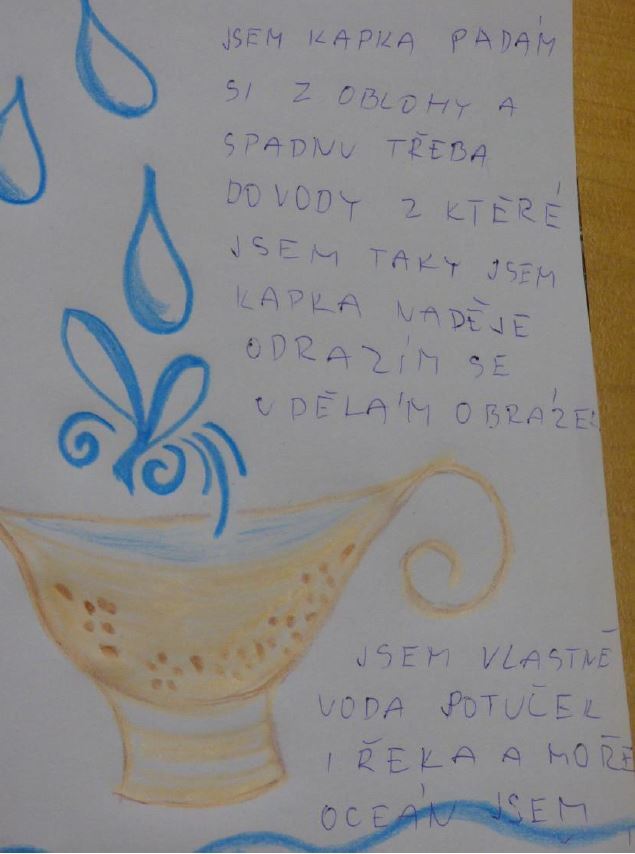 JSEM KAPKA PADÁM
SI Z OBLOHY A
SPADNU TŘEBA
DO VODY Z KTERÉ
JSEM TAKY JSEM
KAPKA NADĚJE
ODRAZÍM SE
UDĚLÁM OBRÁZEK
JSEM VLASTNĚ
VODA POTUČEK
I ŘEKA A MOŘE
OCEÁN JSEM